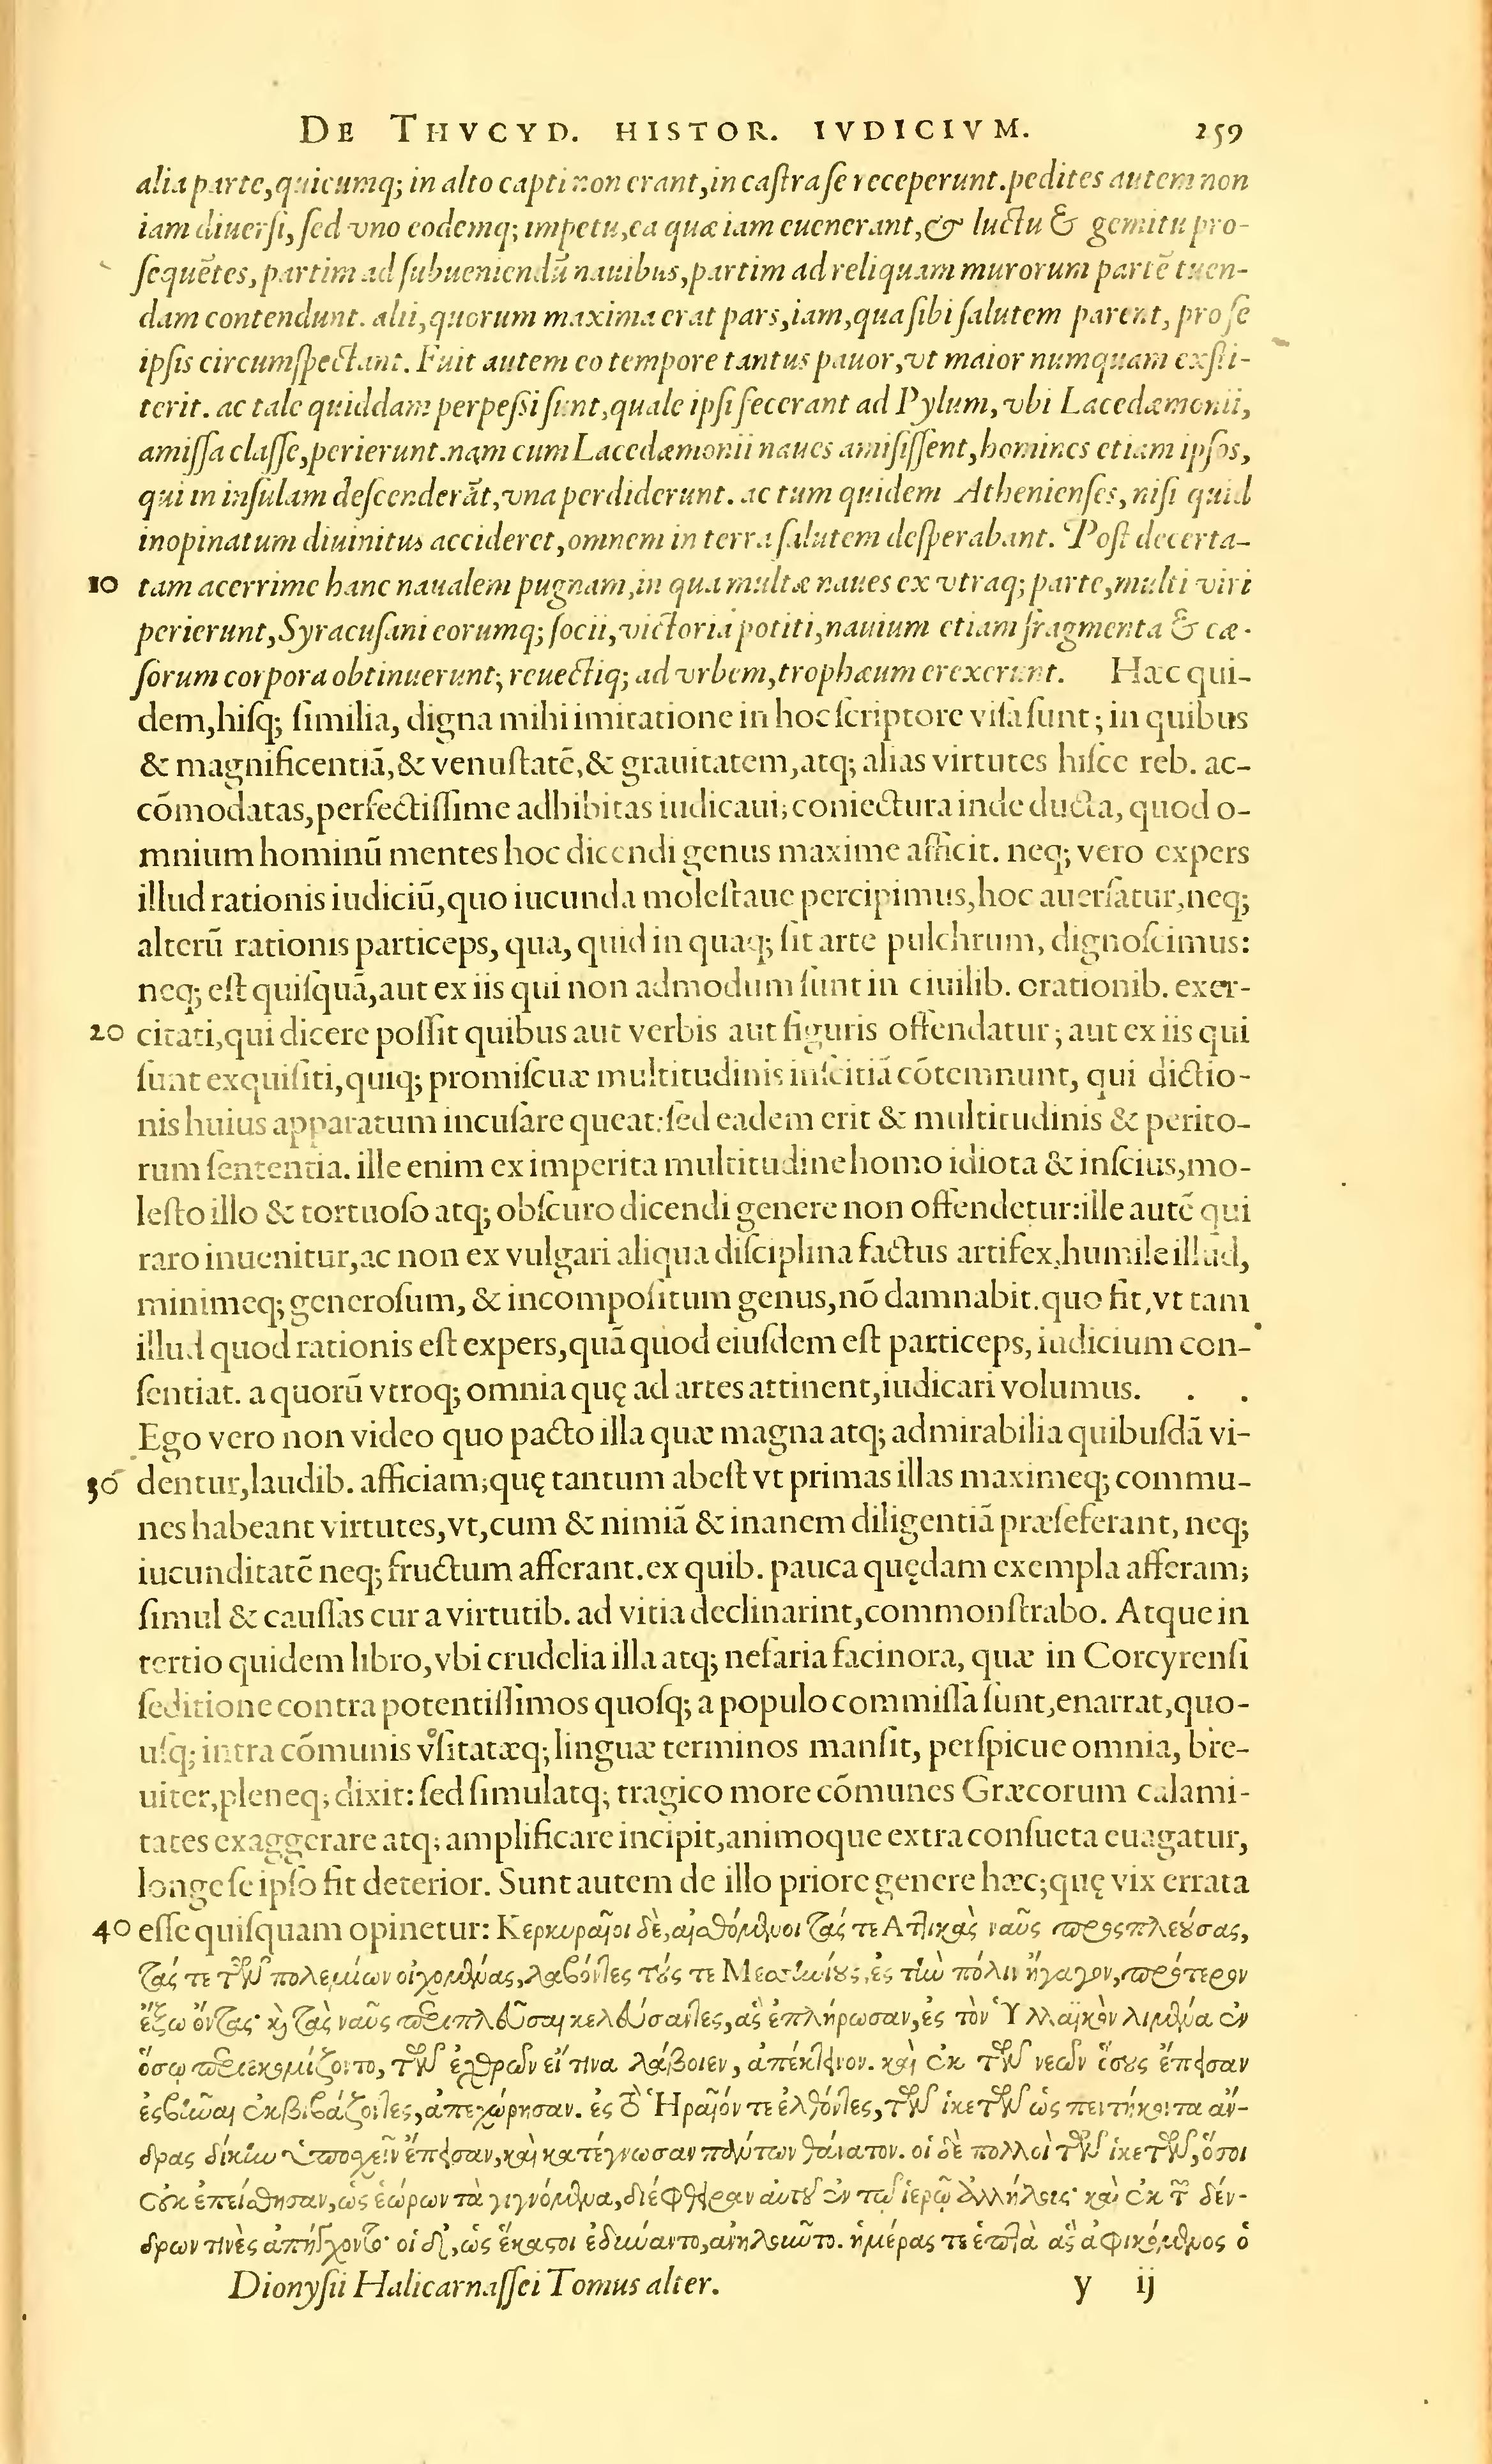 DE THVCYD. HISTOR. IVDICIVM. 259
alia parte, quicumq; in alto capti non erant, in caſtra ſe receperunt. pedites autem non
iam diuerſi, ſed vno eodemq; impetu, ea quæ iam euenerant, & luctu & gemitu pro-
ſequētes, partim ad ſubueniendū nauibus, partim ad reliquam murorum partē tuen-
dam contendunt. alii, quorum maxima erat pars, iam, qua ſibi ſalutem parent, pro ſe
ipſis circumſpectant. Fuit autem eo tempore tantus pauor, vt maior numquam exſti-
terit. ac tale quiddam perpeſsi ſunt, quale ipſi fecerant ad Pylum, vbi Lacedæmonii,
amiſſa claſſe, perierunt. nam cum Lacedæmonii naues amiſiſſent, homines etiam ipſos,
qui in inſulam deſcenderāt, vna perdiderunt. ac tum quidem Athenienſes, niſi quid
inopinatum diuinitus accideret, omnem in terra ſalutem deſperabant. Poſt decerta-
10 tam acerrime hanc naualem pugnam, in qua multæ naues ex vtraq; parte, multi viri
perierunt, Syracuſani eorumq; ſocii, victoria potiti, nauium etiam fragmenta & cæ-
ſorum corpora obtinuerunt; reuectiq; ad vrbem, trophæum erexerunt. Hæc qui-
dem, hiſq; ſimilia, digna mihi imitatione in hoc ſcriptore viſa ſunt; in quibus
& magnificentiā, & venuſtatē, & grauitatem, atq; alias virtutes hiſce reb. ac-
cōmodatas, perfectiſſime adhibitas iudicaui; coniectura inde ducta, quod o-
mnium hominū mentes hoc dicendi genus maxime afficit. neq; vero expers
illud rationis iudiciū, quo iucunda moleſtaue percipimus, hoc auerſatur, neq;
alterū rationis particeps, qua, quid in quaq; ſit arte pulchrum, dignoſcimus:
neq; eſt quiſquā, aut ex iis qui non admodum ſunt in ciuilib. orationib. exer-
20 citati, qui dicere poſſit quibus aut verbis aut figuris offendatur; aut ex iis qui
ſunt exquiſiti, quiq; promiſcuæ multitudinis inſcitiā cōtemnunt, qui dictio-
nis huius apparatum incuſare queat: ſed eadem erit & multitudinis & perito-
rum ſententia. ille enim ex imperita multitudine homo idiota & inſcius, mo-
leſto illo & tortuoſo atq; obſcuro dicendi genere non offendetur: ille autē qui
raro inuenitur, ac non ex vulgari aliqua diſciplina factus artifex, humile illud,
minimeq; generoſum, & incompoſitum genus, nō damnabit. quo fit, vt tam
illud quod rationis eſt expers, quā quod eiuſdem eſt particeps, iudicium con-
ſentiat. a quorū vtroq; omnia quę ad artes attinent, iudicari volumus. . .
Ego vero non video quo pacto illa quæ magna atq; admirabilia quibuſdā vi-
30 dentur, laudib. afficiam; quę tantum abeſt vt primas illas maximeq; commu-
nes habeant virtutes, vt, cum & nimiā & inanem diligentiā præſeferant, neq;
iucunditatē neq; fructum afferant. ex quib. pauca quędam exempla afferam;
ſimul & cauſſas cur a virtutib. ad vitia declinarint, commonſtrabo. Atque in
tertio quidem libro, vbi crudelia illa atq; nefaria facinora, quæ in Corcyrenſi
ſeditione contra potentiſſimos quoſq; a populo commiſſa ſunt, enarrat, quo-
uſq; intra cōmunis vſitatæq; linguæ terminos manſit, perſpicue omnia, bre-
uiter, pleneq; dixit: ſed ſimulatq; tragico more cōmunes Græcorum calami-
tates exaggerare atq; amplificare incipit, animoque extra conſueta euagatur,
longe ſe ipſo fit deterior. Sunt autem de illo priore genere hæc; quę vix errata
40 eſſe quiſquam opinetur: Κερκυραῖοι δὲ, αἰσθόμενοι τάς τε Ἀττικὰς ναῦς προςπλεούσας,
τάς τε τῶν πολεμίων οἰχομένας, λαβόντες τούς τε Μεσσηνίους, ἐς τὴν πόλιν ἤγαγον, πρότερον
ἔξω ὄντας· καὶ τὰς ναῦς περιπλεῦσαι κελεύσαντες, ἃς ἐπλήρωσαν, ἐς τὸν Ὑλλαϊκὸν λιμένα ἐν
ὅσῳ περιεκομίζοντο, τῶν ἐχθρῶν εἴ τινα λάβοιεν, ἀπέκτεινον. καὶ ἐκ τῶν νεῶν ὅσους ἔπεισαν
ἐςβῆναι ἐκβιβάζοντες, ἀπεχώρησαν. ἐς τὸ Ἡραῖόν τε ἐλθόντες, τῶν ἱκετῶν ὡς πεντήκοντα ἄν-
δρας δίκην ὑποσχεῖν ἔπεισαν, καὶ κατέγνωσαν πάντων θάνατον. οἱ δὲ πολλοὶ τῶν ἱκετῶν, ὅσοι
οὐκ ἐπείσθησαν, ὡς ἑώρων τὰ γιγνόμενα, διέφθειραν αὐτοῦ ἐν τῷ ἱερῷ ἀλλήλους· καὶ ἐκ τῶν δέν-
δρων τινὲς ἀπήγχοντο· οἱ δ', ὡς ἕκαστοι ἐδύναντο, ἀνηλοῦντο. ἡμέρας τε ἑπτὰ ἃς ἀφικόμενος ὁ
Dionyſii Halicarnaſſei Tomus alter. y ij